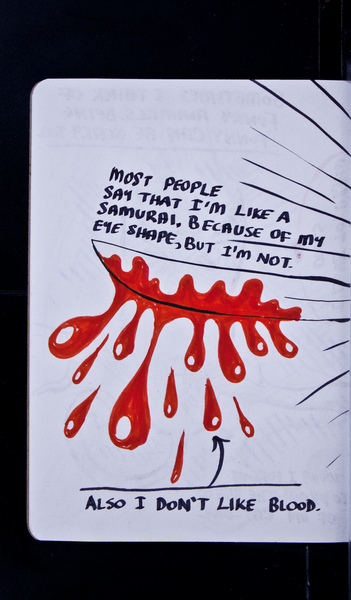 MOST PEOPLE
SAY THAT I'M LIKE A
SAMURAI, BECAUSE OF MY
EYE SHAPE, BUT I'M NOT.
ALSO I DON'T LIKE BLOOD.